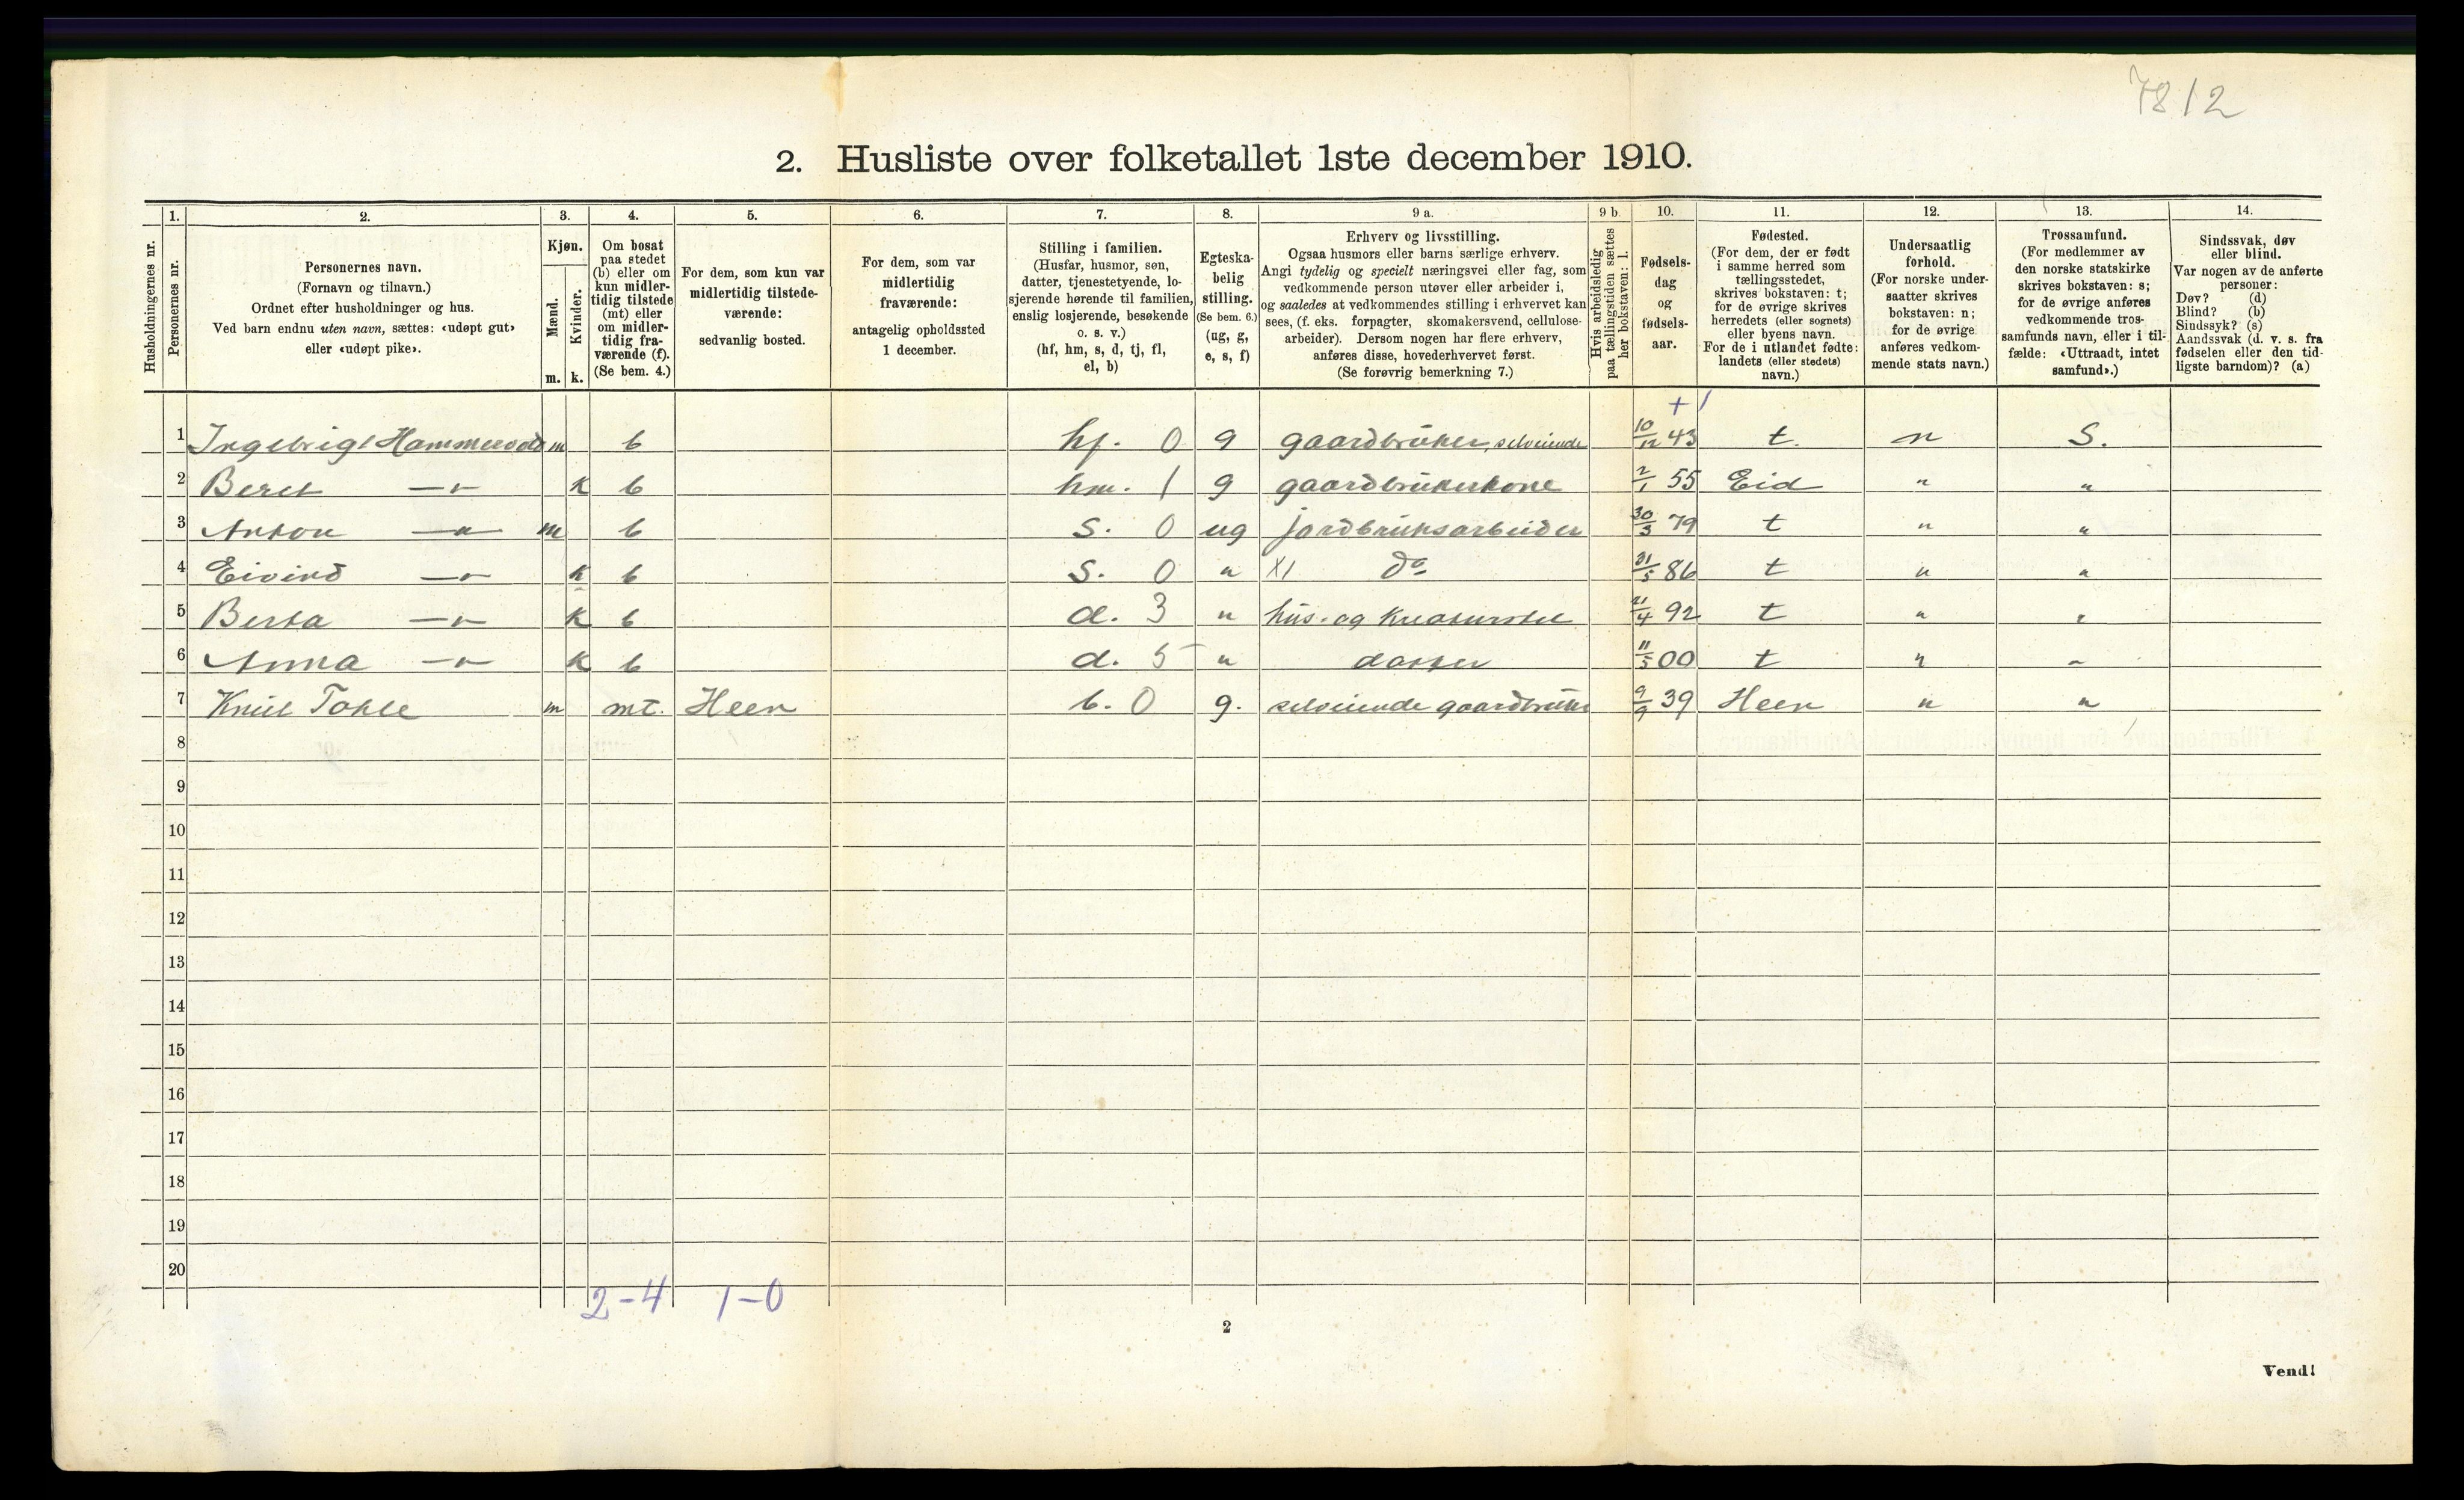 7812
2. Husliste over folketallet 1ste december 1910.
1. 2. 3. 4. 5. 6. 7. 8. 9 a. 9 b. 10. 11. 12. 13. 14.
Husholdningernes nr.
Personernes nr.
Personernes navn.
(Fornavn og tilnavn.)
Ordnet efter husholdninger og hus.
Ved barn endnu uten navn, sættes: «udøpt gut»
eller «udøpt pike».
Kjøn.
Mænd.
Kvinder.
m. k.
Om bosat
paa stedet
(b) eller om
kun midler-
tidig tilstede
(mt) eller
om midler-
tidig fra-
værende (f).
(Se bem. 4.)
For dem, som kun var
midlertidig tilstede-
værende:
sedvanlig bosted.
For dem, som var
midlertidig
fraværende:
antagelig opholdssted
1 december.
Stilling i familien.
(Husfar, husmor, søn,
datter, tjenestetyende, lo-
sjerende hørende til familien,
enslig losjerende, besøkende
o. s. v.)
(hf, hm, s, d, tj, fl,
el, b)
Egteska-
belig
stilling.
(Se bem. 6.)
(ug, g,
e, s, f)
Erhverv og livsstilling.
Ogsaa husmors eller barns særlige erhverv.
Angi tydelig og specielt næringsvei eller fag, som
vedkommende person utøver eller arbeider i,
og saaledes at vedkommendes stilling i erhvervet kan
sees, (f. eks. forpagter, skomakersvend, cellulose-
arbeider). Dersom nogen har flere erhverv,
anføres disse, hovederhvervet først.
(Se forøvrig bemerkning 7.)
Hvis arbeidsledig
paa tællingstiden sættes
her bokstaven: l.
Fødsels-
dag
og
fødsels-
aar.
Fødested.
(For dem, der er født
i samme herred som
tællingsstedet,
skrives bokstaven: t;
for de øvrige skrives
herredets (eller sognets)
eller byens navn.
For de i utlandet fødte:
landets (eller stedets)
navn.)
Undersaatlig
forhold.
(For norske under-
saatter skrives
bokstaven: n;
for de øvrige
anføres vedkom-
mende stats navn.)
Trossamfund.
(For medlemmer av
den norske statskirke
skrives bokstaven: s;
for de øvrige anføres
vedkommende tros-
samfunds navn, eller i til-
fælde: «Uttraadt, intet
samfund».)
Sindssvak, døv
eller blind.
Var nogen av de anførte
personer:
Døv? (d)
Blind? (b)
Sindssyk? (s)
Aandssvak (d. v. s. fra
fødselen eller den tid-
ligste barndom)? (a)
+ 1
1 Ingebrigt Hammervold m b hf. 0 g gaardbruker, selveiende 10/12 43 t. n S.
2 Beret —"— k b hm. 1 g gaardbrukerkone 2/1 55 Eid " "
3 Anton —"— m b s. 0 ug jordbruksarbeider 30/3 79 t " "
4 Eivind —"— k b s. 0 " X1 do 31/5 86 t " "
5 Berta —"— k b d. 3 " hus- og kreaturstel 21/4 92 t " "
6 Anna —"— k b d. 5 " datter 11/5 00 t " "
7 Knut Tokle m mt. Heen b. 0 g. selveiende gaardbruker 9/9 39 Heen " "
8
9
10
11
12
13
14
15
16
17
18
19
20
2-4 1-0
2
Vend!